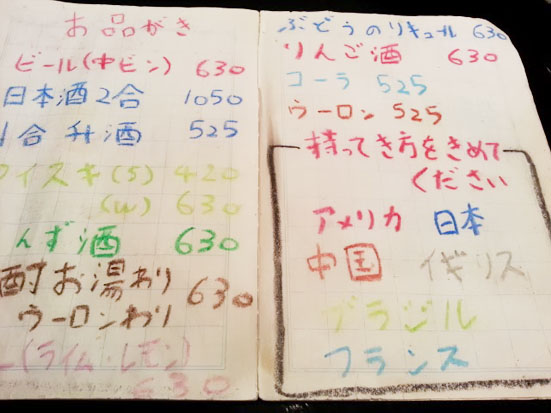 お品がき
ビール(中ビン) 630
日本酒2合 1050
1合升酒 525
イスキ(S) 420
(W) 630
んず酒 630
酎お湯わり
ウーロンわり 630
(ライム・レモン)
630
ぶどうのリキュール 630
りんご酒 630
コーラ 525
ウーロン 525
持ってき方をきめて
ください
アメリカ 日本
中国 イギリス
ブラジル
フランス